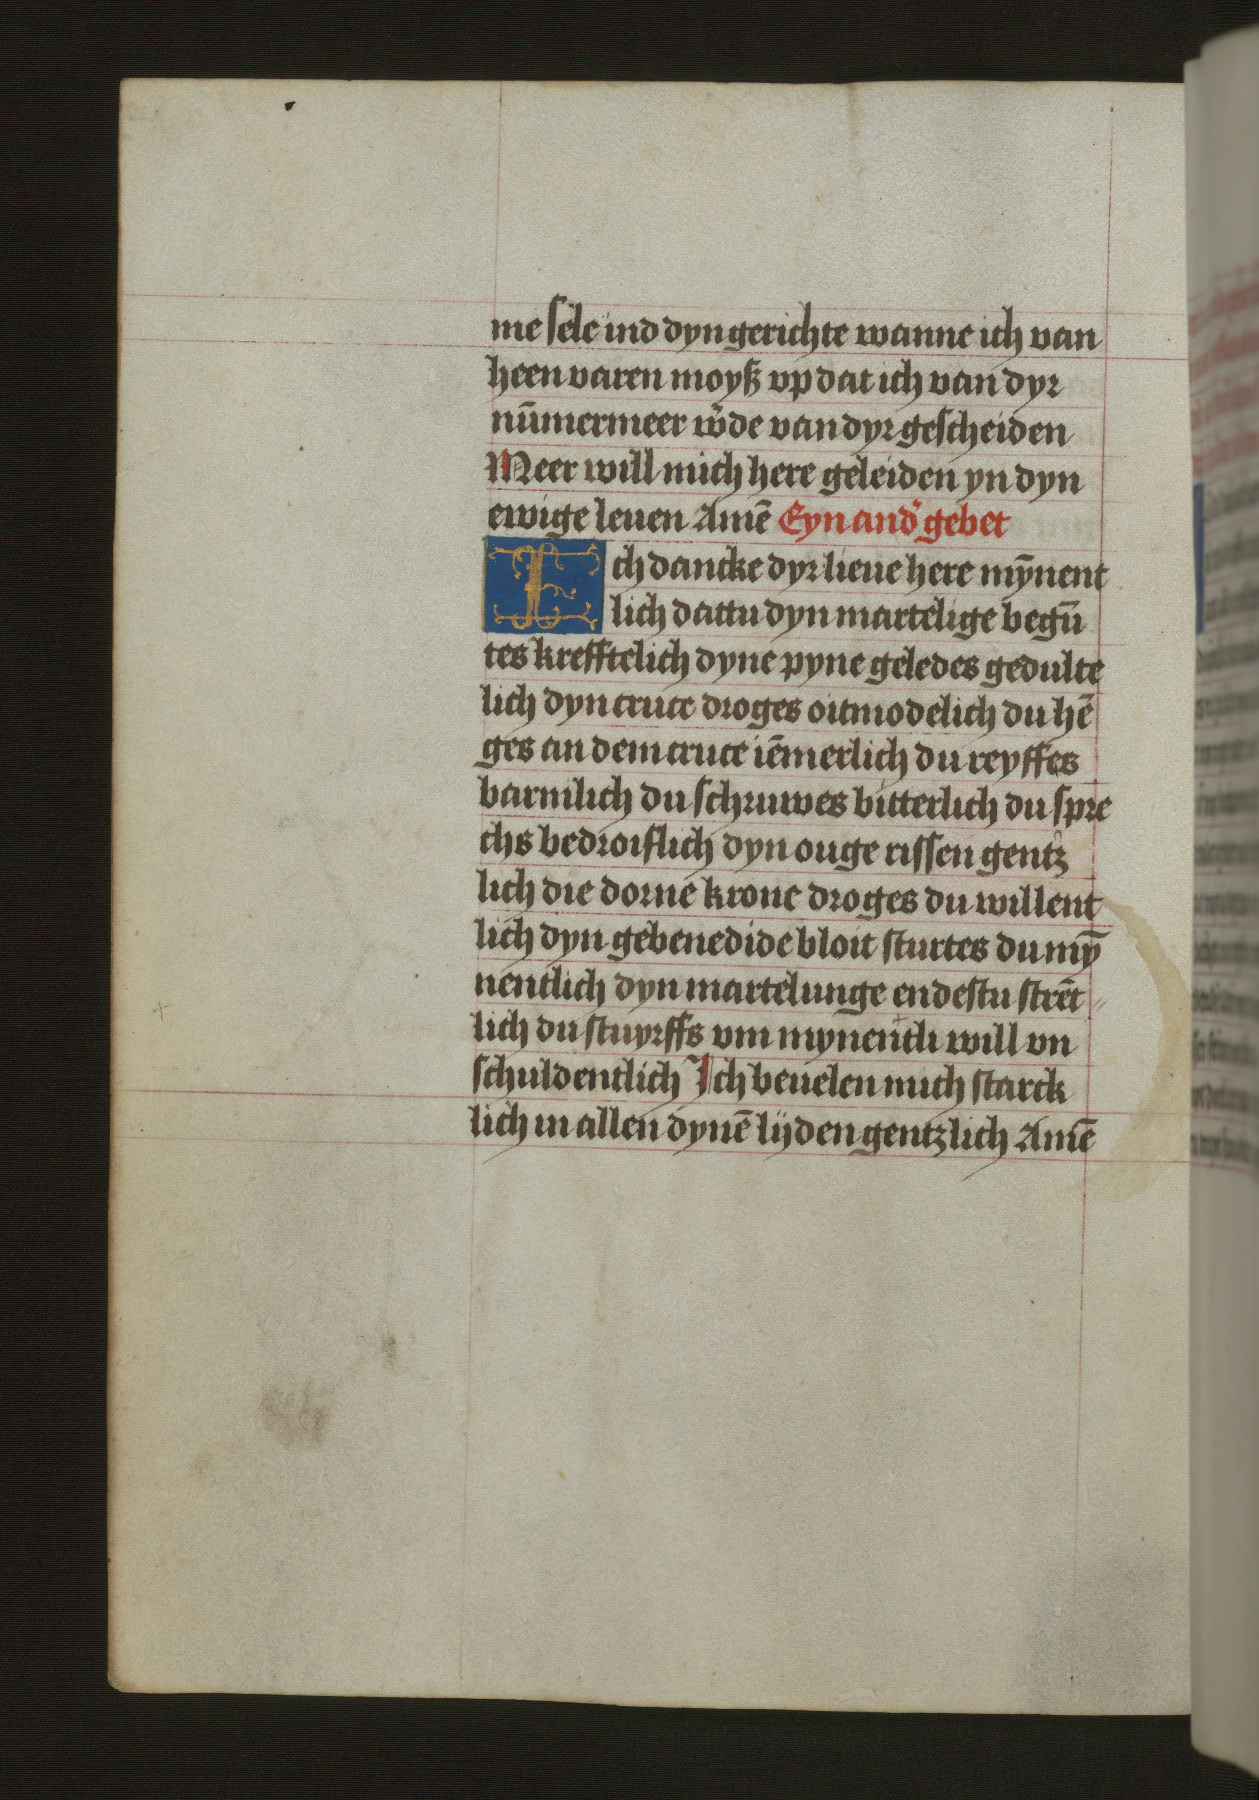 me sele ind dyn gerichte wanne ich van
heen varen moyß vp dat ich van dyr
nūmermeer w̉de van dyr gescheiden
Meer will mich here geleiden yn dyn
ewige leuen Amē Eyn and̉ gebet
Ich dancke dyr lieue here mȳnent
lich dattu dyn martelige begū
tes krefftelich dyne pyne geledes gedulte
lich dyn cruce droges oitmodelich du hē
ges an dem cruce iēmerlich du reyffes
barmlich du schruwes bitterlich du spre
chs bedroiflich dyn ouge rissen gentz
lich die dorne krone droges du willent
lich dyn gebenedide bloit sturtes du mȳ
nentlich dyn martelunge endestu strēt
lich du stuyrffs vm mynentli will vn
schuldentlich Ich beuelen mich starck
lich in allen dynē lijden gentzlich Amē